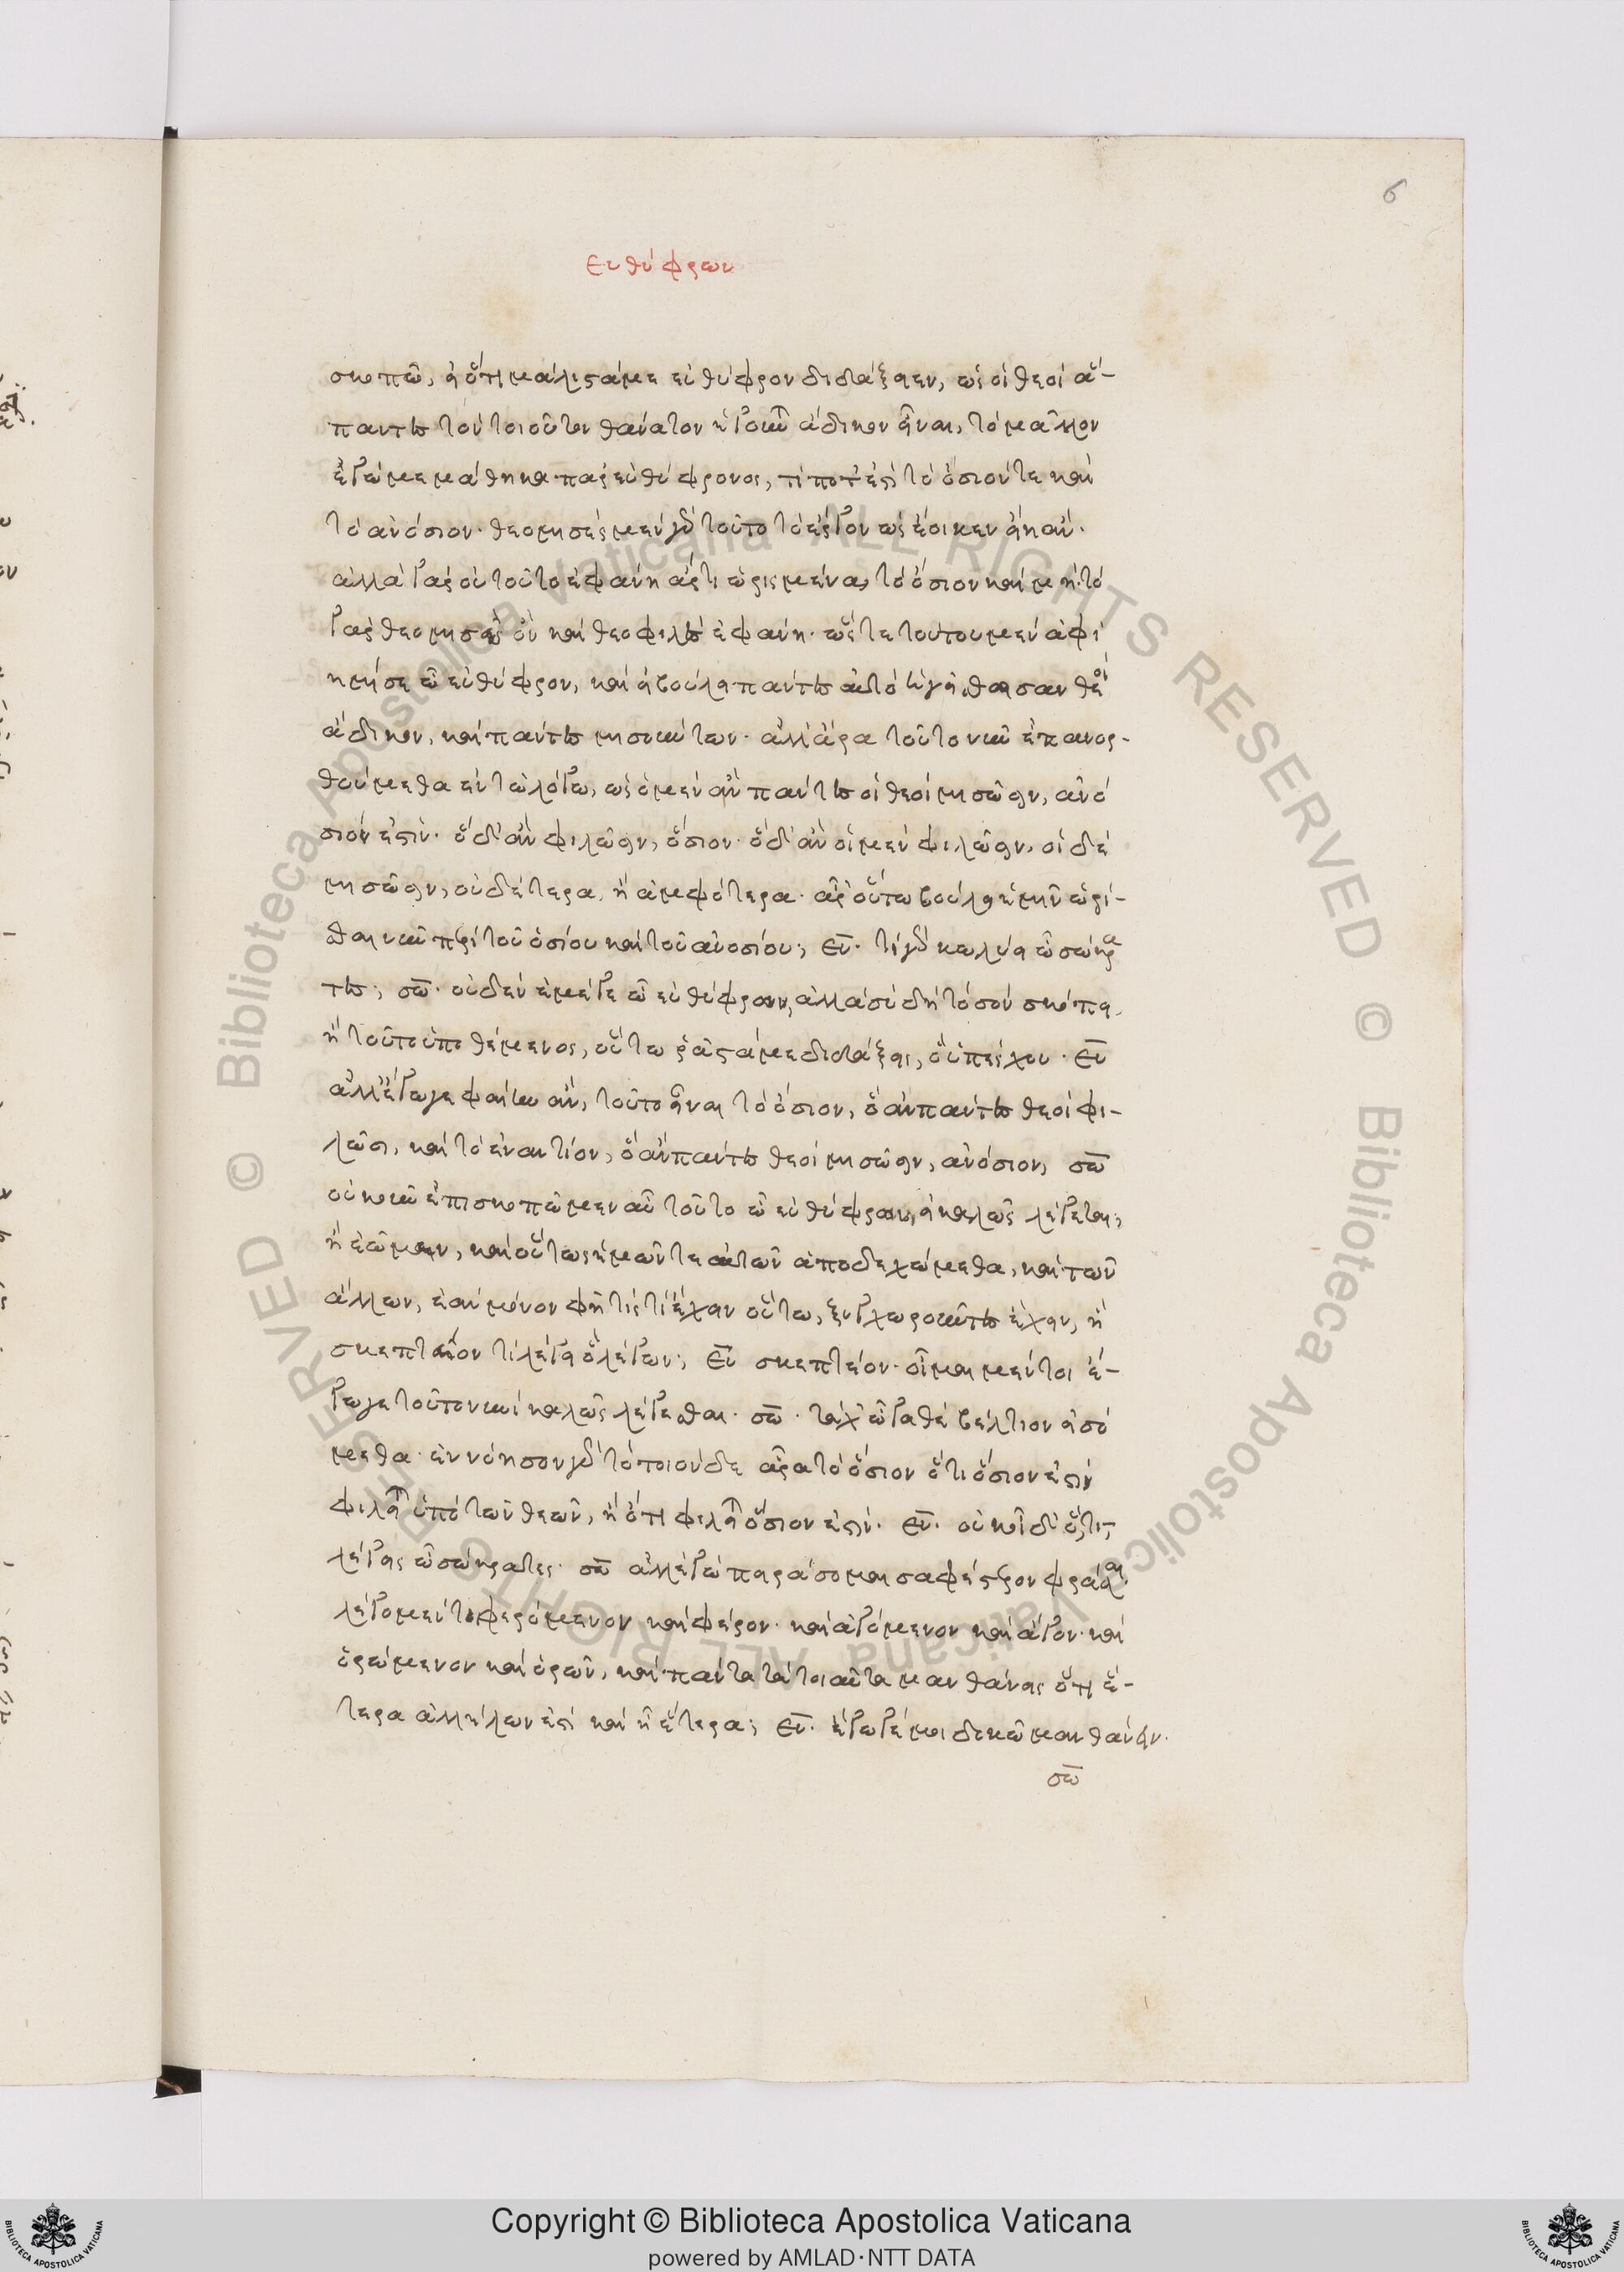 6
ευθύφρων
σκοπῶ, εἰ ὅτι μάλιστά με εὐθύφρων διδάξειεν, ὡς οἱ θεοὶ ἅ-
παντες τὸν τοιοῦτον θάνατον ἡγοῦνται ἄδικον εἶναι, τί μᾶλλον
ἐγὼ μεμάθηκα παρ' εὐθύφρονος, τί ποτ' ἐστὶ τὸ ὅσιόν τε καὶ
τὸ ἀνόσιον· θεομισὲς μὲν γὰρ τοῦτο τὸ ἔργον ὡς ἔοικεν εἴη ἄν·
ἀλλὰ γὰρ οὐ τούτῳ ἐφάνη ἄρτι ὡρισμένα, τὸ ὅσιον καὶ μή· τὸ
γὰρ θεομισὲς ὂν καὶ θεοφιλὲς ἐφάνη· ὥστε τούτου μὲν ἀφί
ημί σε ὦ εὐθύφρον, καὶ εἰ βούλει πάντες αὐτὸ ἡγείσθωσαν θεοὶ
ἄδικον, καὶ πάντες μισούντων· ἀλλ' ἄρα τοῦτο νῦν ἐπανορ-
θούμεθα ἐν τῷ λόγῳ, ὡς ὃ μὲν ἂν πάντες οἱ θεοὶ μισῶσιν, ἀνό
σιόν ἐστιν· ὃ δ' ἂν φιλῶσιν, ὅσιον· ὃ δ' ἂν οἱ μὲν φιλῶσιν, οἱ δὲ
μισῶσιν, οὐδέτερα, ἢ ἀμφότερα· ἆρ' οὕτω βούλει ἡμῖν ὡρί-
σθαι νῦν περὶ τοῦ ὁσίου καὶ τοῦ ἀνοσίου; ευ· τί γὰρ κωλύει ὦ σώκρα
τες; σω· οὐδὲν ἐμέ γε ὦ εὐθύφρον, ἀλλὰ σὺ δὴ τὸ σὸν σκόπει,
εἰ τοῦτο ὑποθέμενος, οὕτω ῥᾷστά με διδάξεις, ὃ ὑπέσχου· ευ
ἀλλ' ἔγωγε φαίην ἄν, τοῦτο εἶναι τὸ ὅσιον, ὃ ἂν πάντες θεοὶ φι-
λῶσι, καὶ τὸ ἐναντίον, ὃ ἂν πάντες θεοὶ μισῶσιν, ἀνόσιον, σω
οὐκοῦν ἐπισκοπῶμεν αὖ τοῦτο ὦ εὐθύφρον, εἰ καλῶς λέγεται;
ἢ ἐῶμεν, καὶ οὕτως ἡμῶν τε αὐτῶν ἀποδεχώμεθα, καὶ τῶν
ἄλλων, ἐὰν μόνον φῇ τίς τι ἔχειν οὕτω, ξυγχωροῦντες ἔχειν, ἢ
σκεπτέον τί λέγει ὁ λέγων; ευ σκεπτέον· οἶμαι μέντοι ἔ-
γωγε τοῦτο νυνὶ καλῶς λέγεσθαι· σω· τάχ' ὦγαθὲ βέλτιον εἰσό
μεθα· ἐννόησον γὰρ τὸ ποιόνδε ἆρα τὸ ὅσιον ὅτι ὅσιόν ἐστιν
φιλεῖται ὑπὸ τῶν θεῶν, ἢ ὅτι φιλεῖται ὅσιόν ἐστιν· ευ· οὐκ οἶδ' ὅ,τι
λέγεις ὦ σώκρατες· σω ἀλλ' ἐγὼ πειράσομαι σαφέστερον φράσαι
λέγομέν τι φερόμενον καὶ φέρον· καὶ ἀγόμενον καὶ ἄγον· καὶ
ὁρώμενον καὶ ὁρῶν, καὶ πάντα τὰ τοιαῦτα μανθάνεις ὅτι ἕ-
τερα ἀλλήλων ἐστὶ καὶ ᾗ ἕτερα; ευ· ἔγωγέ μοι δοκῶ μανθάνειν·
σω
Copyright © Biblioteca Apostolica Vaticana
powered by AMLAD·NTT DATA
© Biblioteca Apostolica Vaticana ALL RIGHTS RESERVED
© Biblioteca Apostolica Vaticana ALL RIGHTS RESERVED
BIBLIOTECA APOSTOLICA VATICANA
BIBLIOTECA APOSTOLICA VATICANA